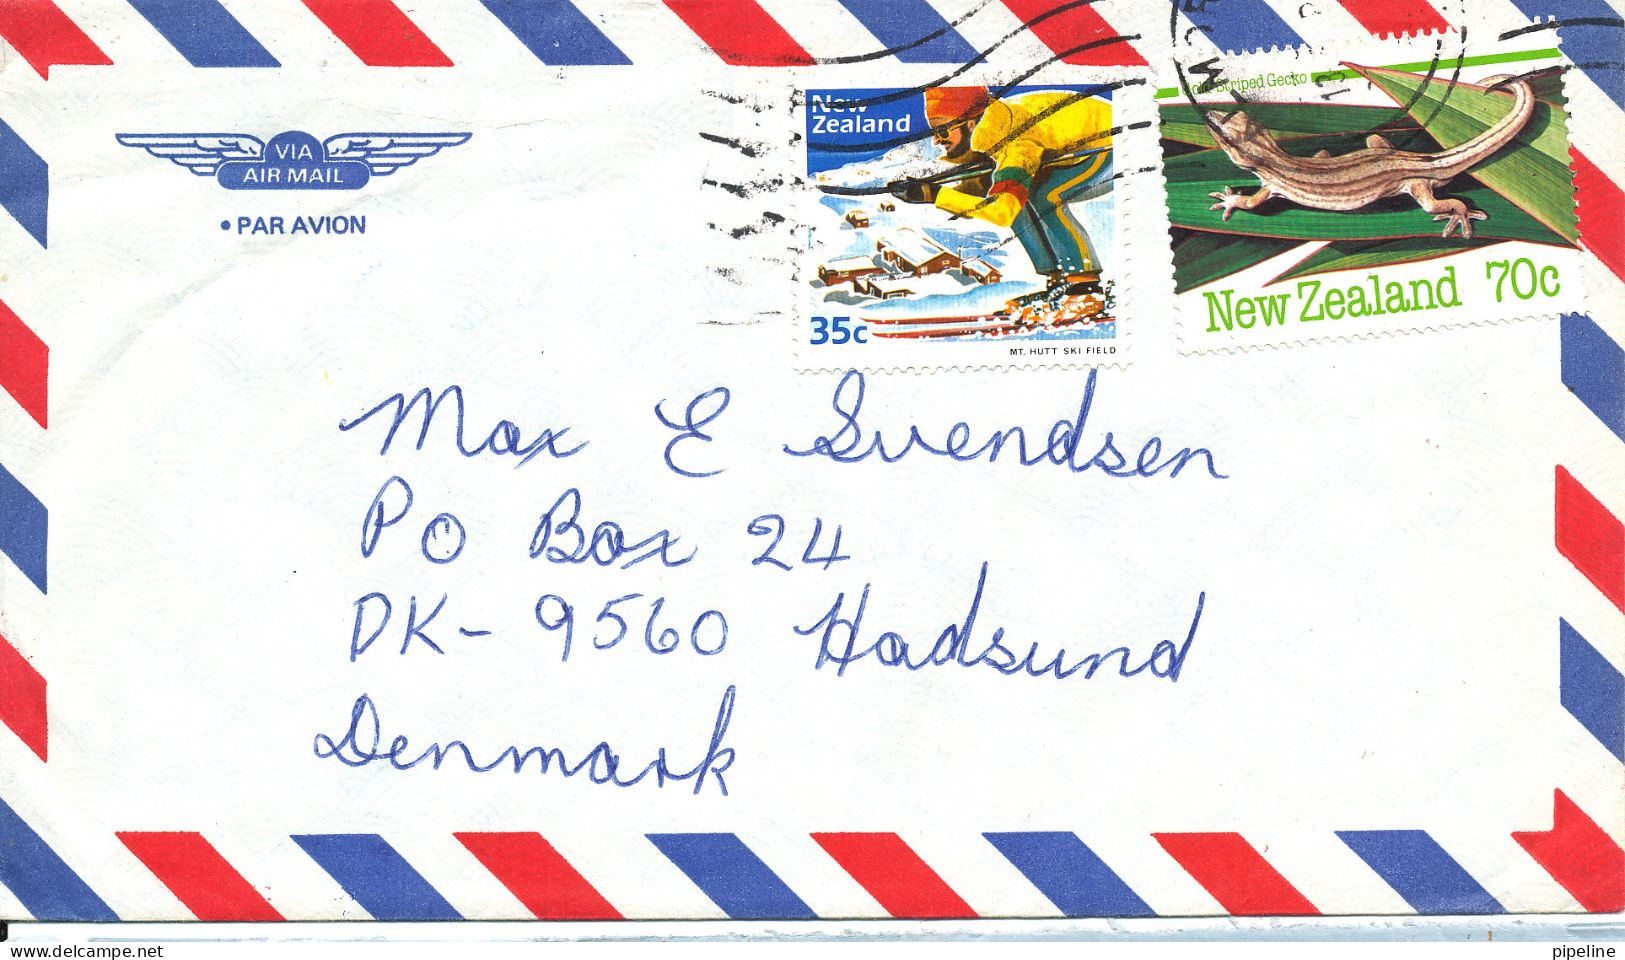 VIA
AIR MAIL
• PAR AVION
New
Zealand
35c
MT. HUTT SKI FIELD
Gold Striped Gecko
New Zealand 70c
Max E Svendsen
PO Box 24
DK- 9560 Hadsund
Denmark
pipeline